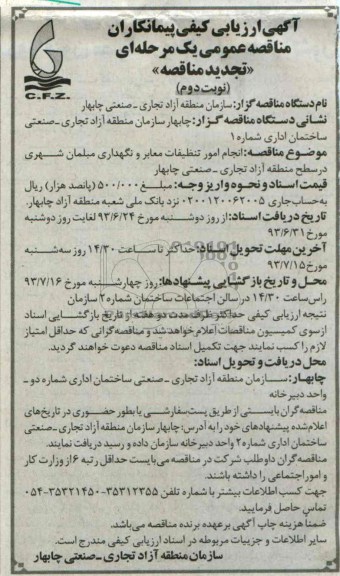 آگهی ارزیابی کیفی پیمانکاران
مناقصه عمومی یک مرحله‌ای
«تجدید مناقصه»
(نوبت دوم)
C.F.Z.
نام دستگاه مناقصه گزار: سازمان منطقه آزاد تجاری - صنعتی چابهار
نشانی دستگاه مناقصه گزار: چابهار سازمان منطقه آزاد تجاری - صنعتی
ساختمان اداری شماره ۱
موضوع مناقصه: انجام امور تنظیفات معابر و نگهداری مبلمان شهری
در سطح منطقه آزاد تجاری - صنعتی چابهار
قیمت اسناد و نحوه واریز وجه: مبلغ ۵۰۰/۰۰۰ (پانصد هزار) ریال
به حساب جاری ۰۲۰۰۱۲۰۰۶۲۰۰۵ نزد بانک ملی شعبه منطقه آزاد چابهار.
تاریخ دریافت اسناد: از روز دوشنبه مورخ ۹۳/۶/۲۴ لغایت روز دوشنبه
مورخ ۹۳/۶/۳۱
آخرین مهلت تحویل اسناد: حداکثر تا ساعت ۱۴/۳۰ روز سه‌شنبه
مورخ ۹۳/۷/۱۵
محل و تاریخ بازگشایی پیشنهادها: روز چهارشنبه مورخ ۹۳/۷/۱۶
راس ساعت ۱۴/۳۰ در سالن اجتماعات ساختمان شماره ۲ سازمان
نتیجه ارزیابی کیفی حداکثر ظرف مدت دو هفته از تاریخ بازگشایی اسناد
از سوی کمیسیون مناقصات اعلام خواهد شد و مناقصه‌گرانی که حداقل امتیاز
لازم را کسب نمایند جهت تکمیل اسناد مناقصه دعوت خواهند گردید.
محل دریافت و تحویل اسناد:
چابهار: سازمان منطقه آزاد تجاری - صنعتی ساختمان اداری شماره دو -
واحد دبیرخانه
مناقصه گران بایستی از طریق پست سفارشی یا بطور حضوری در تاریخ‌های
اعلام شده پیشنهادهای خود را به آدرس: چابهار سازمان منطقه آزاد تجاری - صنعتی
ساختمان اداری شماره ۲ واحد دبیرخانه سازمان داده و رسید دریافت نمایند.
مناقصه گران داوطلب شرکت در مناقصه می‌بایست حداقل رتبه ۶ از وزارت کار
و امور اجتماعی را داشته باشند.
جهت کسب اطلاعات بیشتر با شماره تلفن ۳۵۳۱۲۳۵۵-۳۵۳۲۱۴۵۰-۰۵۴
تماس حاصل فرمایید.
ضمنا هزینه چاپ آگهی برعهده برنده مناقصه می‌باشد.
سایر اطلاعات و جزییات مربوطه در اسناد ارزیابی کیفی مندرج است.
سازمان منطقه آزاد تجاری - صنعتی چابهار